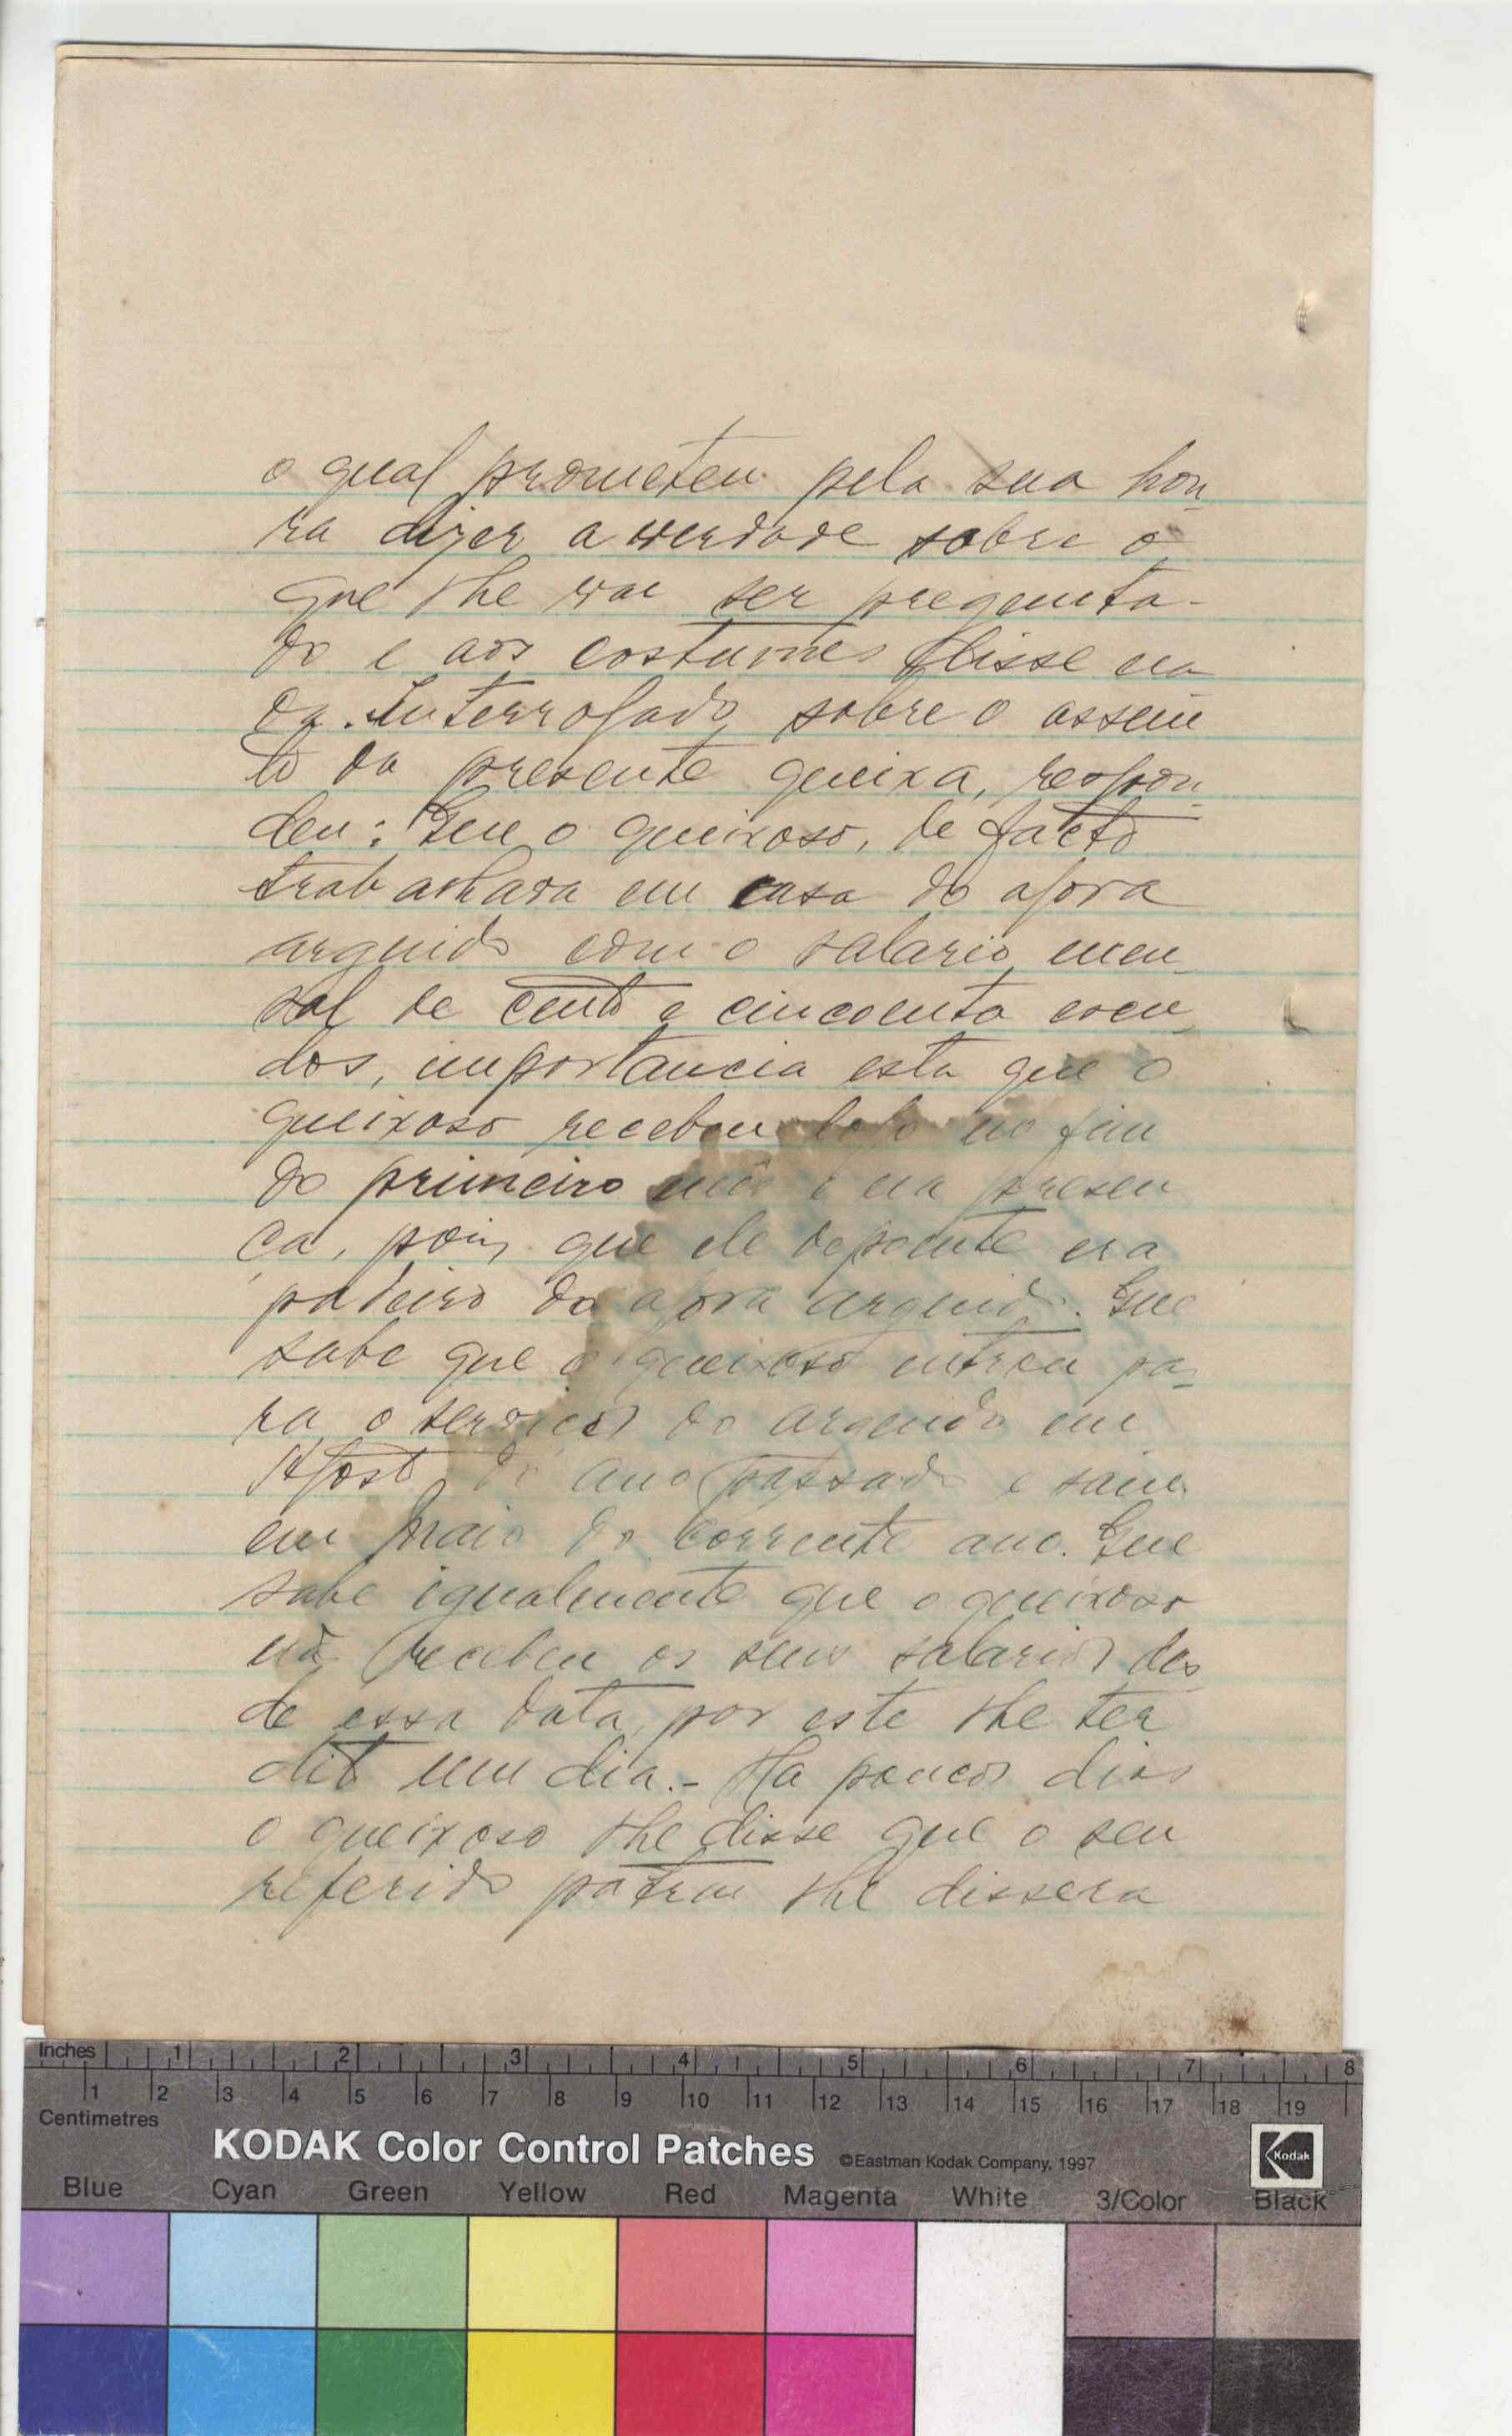 o qual prometeu pela sua hon-
ra dizer a verdade sobre o
que lhe vae ser pregunta-
do e aos costumes disse na-
da. Interrogado sobre o assun
to da presente queixa, respon-
deu: Que o queixoso, de facto
trabalhara em casa do agora
arguido com o salario men-
sal de cento e cincoenta escu-
dos, importancia esta que o
queixoso recebeu logo no fim
do primeiro mês e na presen
ça, pois que ele depoente era
padeiro do agora arguido. Que
sabe que o queixoso entrou pa-
ra o serviço do arguido em
Agosto do ano passado e saiu
em Maio do corrente ano. Que
sabe igualmente que o queixoso
não recebeu os seus salarios des-
de essa data, por este lhe ter
dito um dia.- Ha poucos dias
o queixoso lhe disse que o seu
referido patrão lhe dissera
Inches 1 2 3 4 5 6 7 8
1 2 3 4 5 6 7 8 9 10 11 12 13 14 15 16 17 18 19
Centimetres
KODAK Color Control Patches ©Eastman Kodak Company, 1997 Kodak
Blue Cyan Green Yellow Red Magenta White 3/Color Black